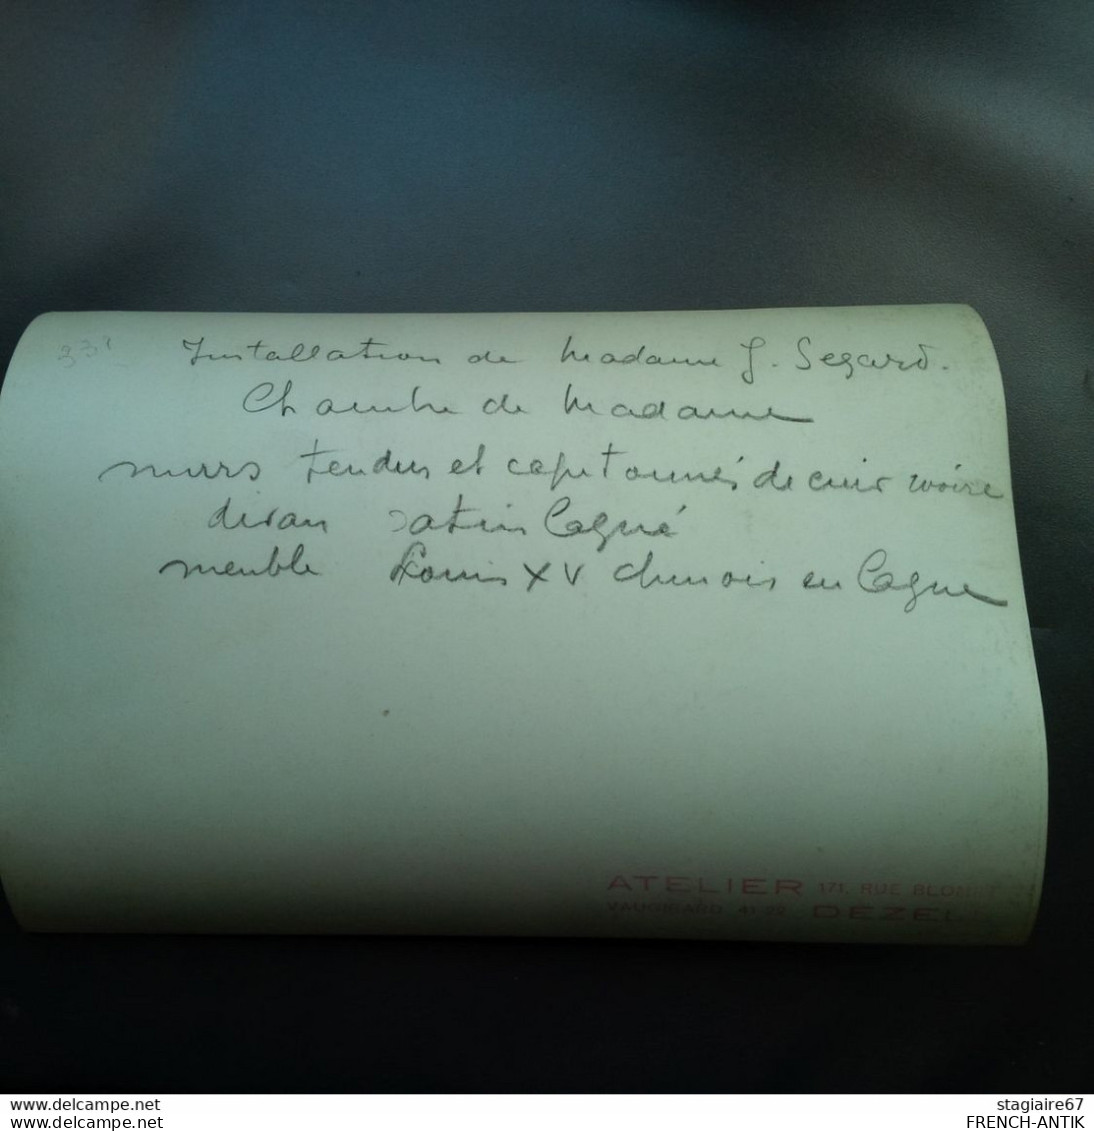 331
Installation de Madame J. Segard.
Chambre de Madame
murs tendus et capitonnés de cuir ivoire
divan satin laqué
meuble Louis XV chinois en laque
ATELIER 171, RUE BLOMET
VAUGIRARD 41-29 DEZEL
www.delcampe.net
stagiaire67
www.delcampe.net
FRENCH-ANTIK